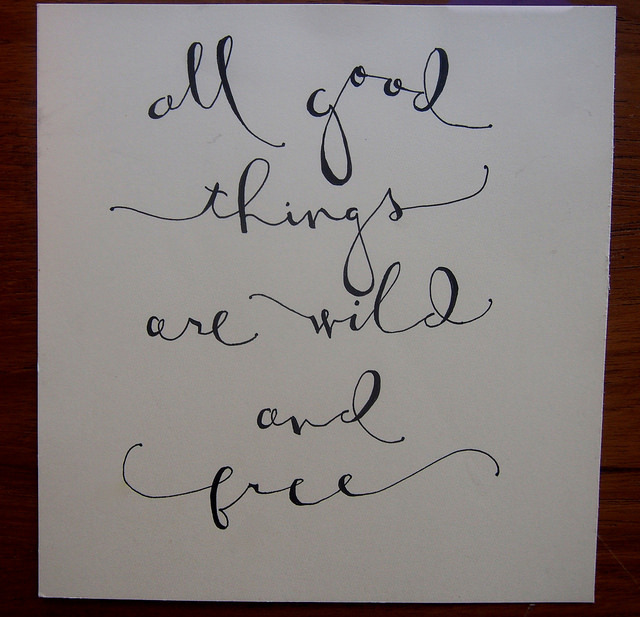 all good
things
are wild
and
free